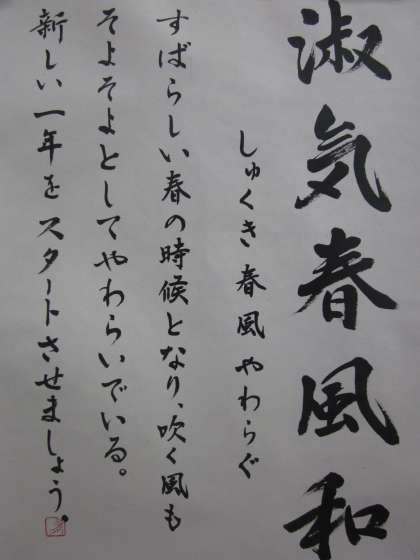 淑気春風和
しゅくき春風やわらぐ
すばらしい春の時候となり、吹く風も
そよそよとしてやわらいでいる。
新しい一年をスタートさせましょう。